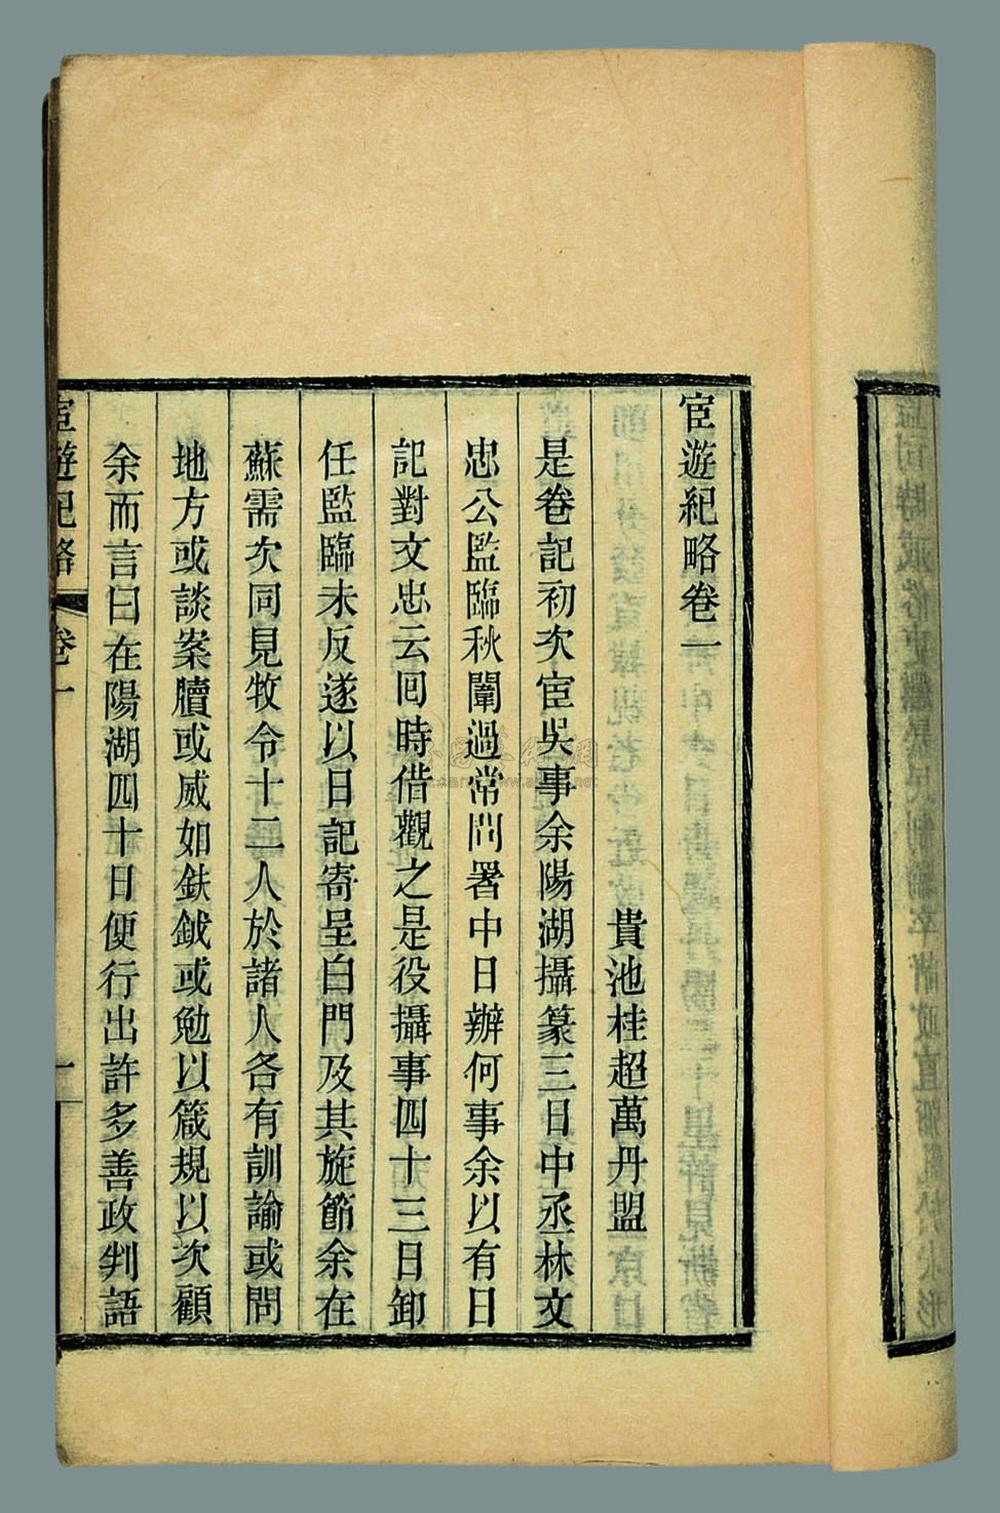 宦遊紀略卷一
貴池桂超萬丹盟
是卷記初次宦吳事余陽湖攝篆三日中丞林文
忠公監臨秋闈過常問署中日辦何事余以有日
記對文忠云回時借觀之是役攝事四十三日卸
任監臨未反遂以日記寄呈白門及其旋節余在
蘇需次同見牧令十二人於諸人各有訓論或問
地方或談案牘或威如鈇鉞或勉以箴規以次顧
余而言曰在陽湖四十日便行出許多善政判語
宦遊紀略
卷一
一